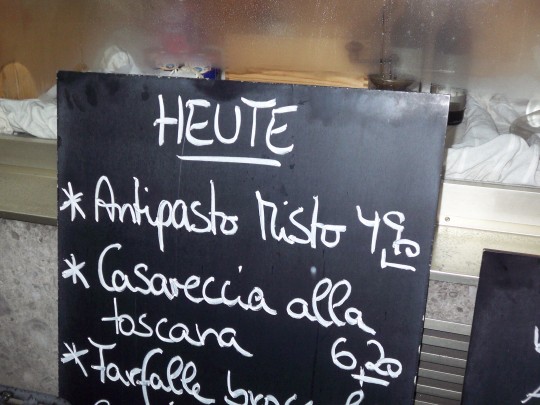 HEUTE
* Antipasto Misto
* Casareccia alla
toscana 6,20
* Farfalle